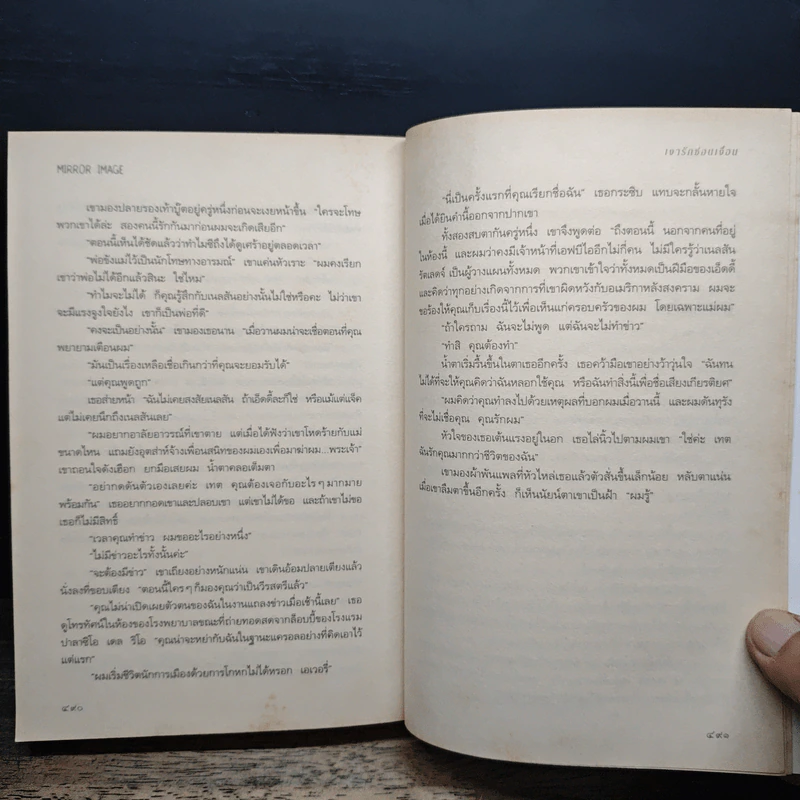 MIRROR IMAGE
เขามองปลายรองเท้าบู๊ตอยู่ครู่หนึ่งก่อนจะเงยหน้าขึ้น "ใครจะโทษ
พวกเขาได้ล่ะ สองคนนี้รักกันมาก่อนผมจะเกิดเสียอีก"
"ตอนนี้เห็นได้ชัดแล้วว่าทำไมซีถึงได้ดูเศร้าอยู่ตลอดเวลา"
"พ่อขังแม่ไว้เป็นนักโทษทางอารมณ์" เขาแค่นหัวเราะ "ผมคงเรียก
เขาว่าพ่อไม่ได้อีกแล้วสินะ ใช่ไหม"
"ทำไมจะไม่ได้ ก็คุณรู้สึกกับเนลสันอย่างนั้นไม่ใช่หรือคะ ไม่ว่าเขา
จะมีแรงจูงใจยังไง เขาก็เป็นพ่อที่ดี"
"คงจะเป็นอย่างนั้น" เขามองเธอนาน "เมื่อวานผมน่าจะเชื่อตอนที่คุณ
พยายามเตือนผม"
"มันเป็นเรื่องเหลือเชื่อเกินกว่าที่คุณจะยอมรับได้"
"แต่คุณพูดถูก"
เธอส่ายหน้า "ฉันไม่เคยสงสัยเนลสัน ถ้าเอ็ดดี้ละก็ใช่ หรือแม้แต่แจ็ค
แต่ไม่เคยนึกถึงเนลสันเลย"
"ผมอยากอาลัยอาวรณ์ที่เขาตาย แต่เมื่อได้ฟังว่าเขาโหดร้ายกับแม่
ขนาดไหน แถมยังอุตส่าห์จ้างเพื่อนสนิทของผมเองเพื่อมาฆ่าผม...พระเจ้า"
เขาถอนใจดังเฮือก ยกมือเสยผม น้ำตาคลอเต็มตา
"อย่ากดดันตัวเองเลยค่ะ เทต คุณต้องเจอกับอะไรๆ มากมาย
พร้อมกัน" เธออยากกอดเขาและปลอบเขา แต่เขาไม่ได้ขอ และถ้าเขาไม่ขอ
เธอก็ไม่มีสิทธิ์
"เวลาคุณทำข่าว ผมขออะไรอย่างหนึ่ง"
"ไม่มีข่าวอะไรทั้งนั้นค่ะ"
"จะต้องมีข่าว" เขาเถียงอย่างหนักแน่น เขาเดินอ้อมปลายเตียงแล้ว
นั่งลงที่ขอบเตียง "ตอนนี้ใครๆ ก็มองคุณว่าเป็นวีรสตรีแล้ว"
"คุณไม่น่าเปิดเผยตัวตนของฉันในงานแถลงข่าวเมื่อเช้านี้เลย" เธอ
ดูโทรทัศน์ในห้องของโรงพยาบาลขณะที่ถ่ายทอดสดจากล็อบบี้ของโรงแรม
ปาลาซิโอ เดล ริโอ "คุณน่าจะหย่ากับฉันในฐานะแครอลอย่างที่คิดเอาไว้
แต่แรก"
"ผมเริ่มชีวิตนักการเมืองด้วยการโกหกไม่ได้หรอก เอเวอรี่"
๔๙๐
เงารักซ่อนเงื่อน
"นี่เป็นครั้งแรกที่คุณเรียกชื่อฉัน" เธอกระซิบ แทบจะกลั้นหายใจ
เมื่อได้ยินคำนี้ออกจากปากเขา
ทั้งสองสบตากันครู่หนึ่ง เขาจึงพูดต่อ "ถึงตอนนี้ นอกจากคนที่อยู่
ในห้องนี้ และผมว่าคงมีเจ้าหน้าที่เอฟบีไออีกไม่กี่คน ไม่มีใครรู้ว่าเนลสัน
รัตเลดจ์ เป็นผู้วางแผนทั้งหมด พวกเขาเข้าใจว่าทั้งหมดเป็นฝีมือของเอ็ดดี้
และคิดว่าทุกอย่างเกิดจากการที่เขาผิดหวังกับอเมริกาหลังสงคราม ผมจะ
ขอร้องให้คุณเก็บเรื่องนี้ไว้เพื่อเห็นแก่ครอบครัวของผม โดยเฉพาะแม่ผม"
"ถ้าใครถาม ฉันจะไม่พูด แต่ฉันจะไม่ทำข่าว"
"ทำสิ คุณต้องทำ"
น้ำตาเริ่มรื้นขึ้นในตาเธออีกครั้ง เธอคว้ามือเขาอย่างว้าวุ่นใจ "ฉันทน
ไม่ได้ที่จะให้คุณคิดว่าฉันหลอกใช้คุณ หรือฉันทำสิ่งนี้เพื่อชื่อเสียงเกียรติยศ"
"ผมคิดว่าคุณทำลงไปด้วยเหตุผลที่บอกผมเมื่อวานนี้ และผมดันทุรัง
ที่จะไม่เชื่อคุณ คุณรักผม"
หัวใจของเธอเต้นแรงอยู่ในอก เธอไล่นิ้วไปตามผมเขา "ใช่ค่ะ เทต
ฉันรักคุณมากกว่าชีวิตของฉัน"
เขามองผ้าพันแผลที่หัวไหล่เธอแล้วตัวสั่นขึ้นเล็กน้อย หลับตาแน่น
เมื่อเขาลืมตาขึ้นอีกครั้ง ก็เห็นนัยน์ตาเขาเป็นฝ้า "ผมรู้"
๔๙๑